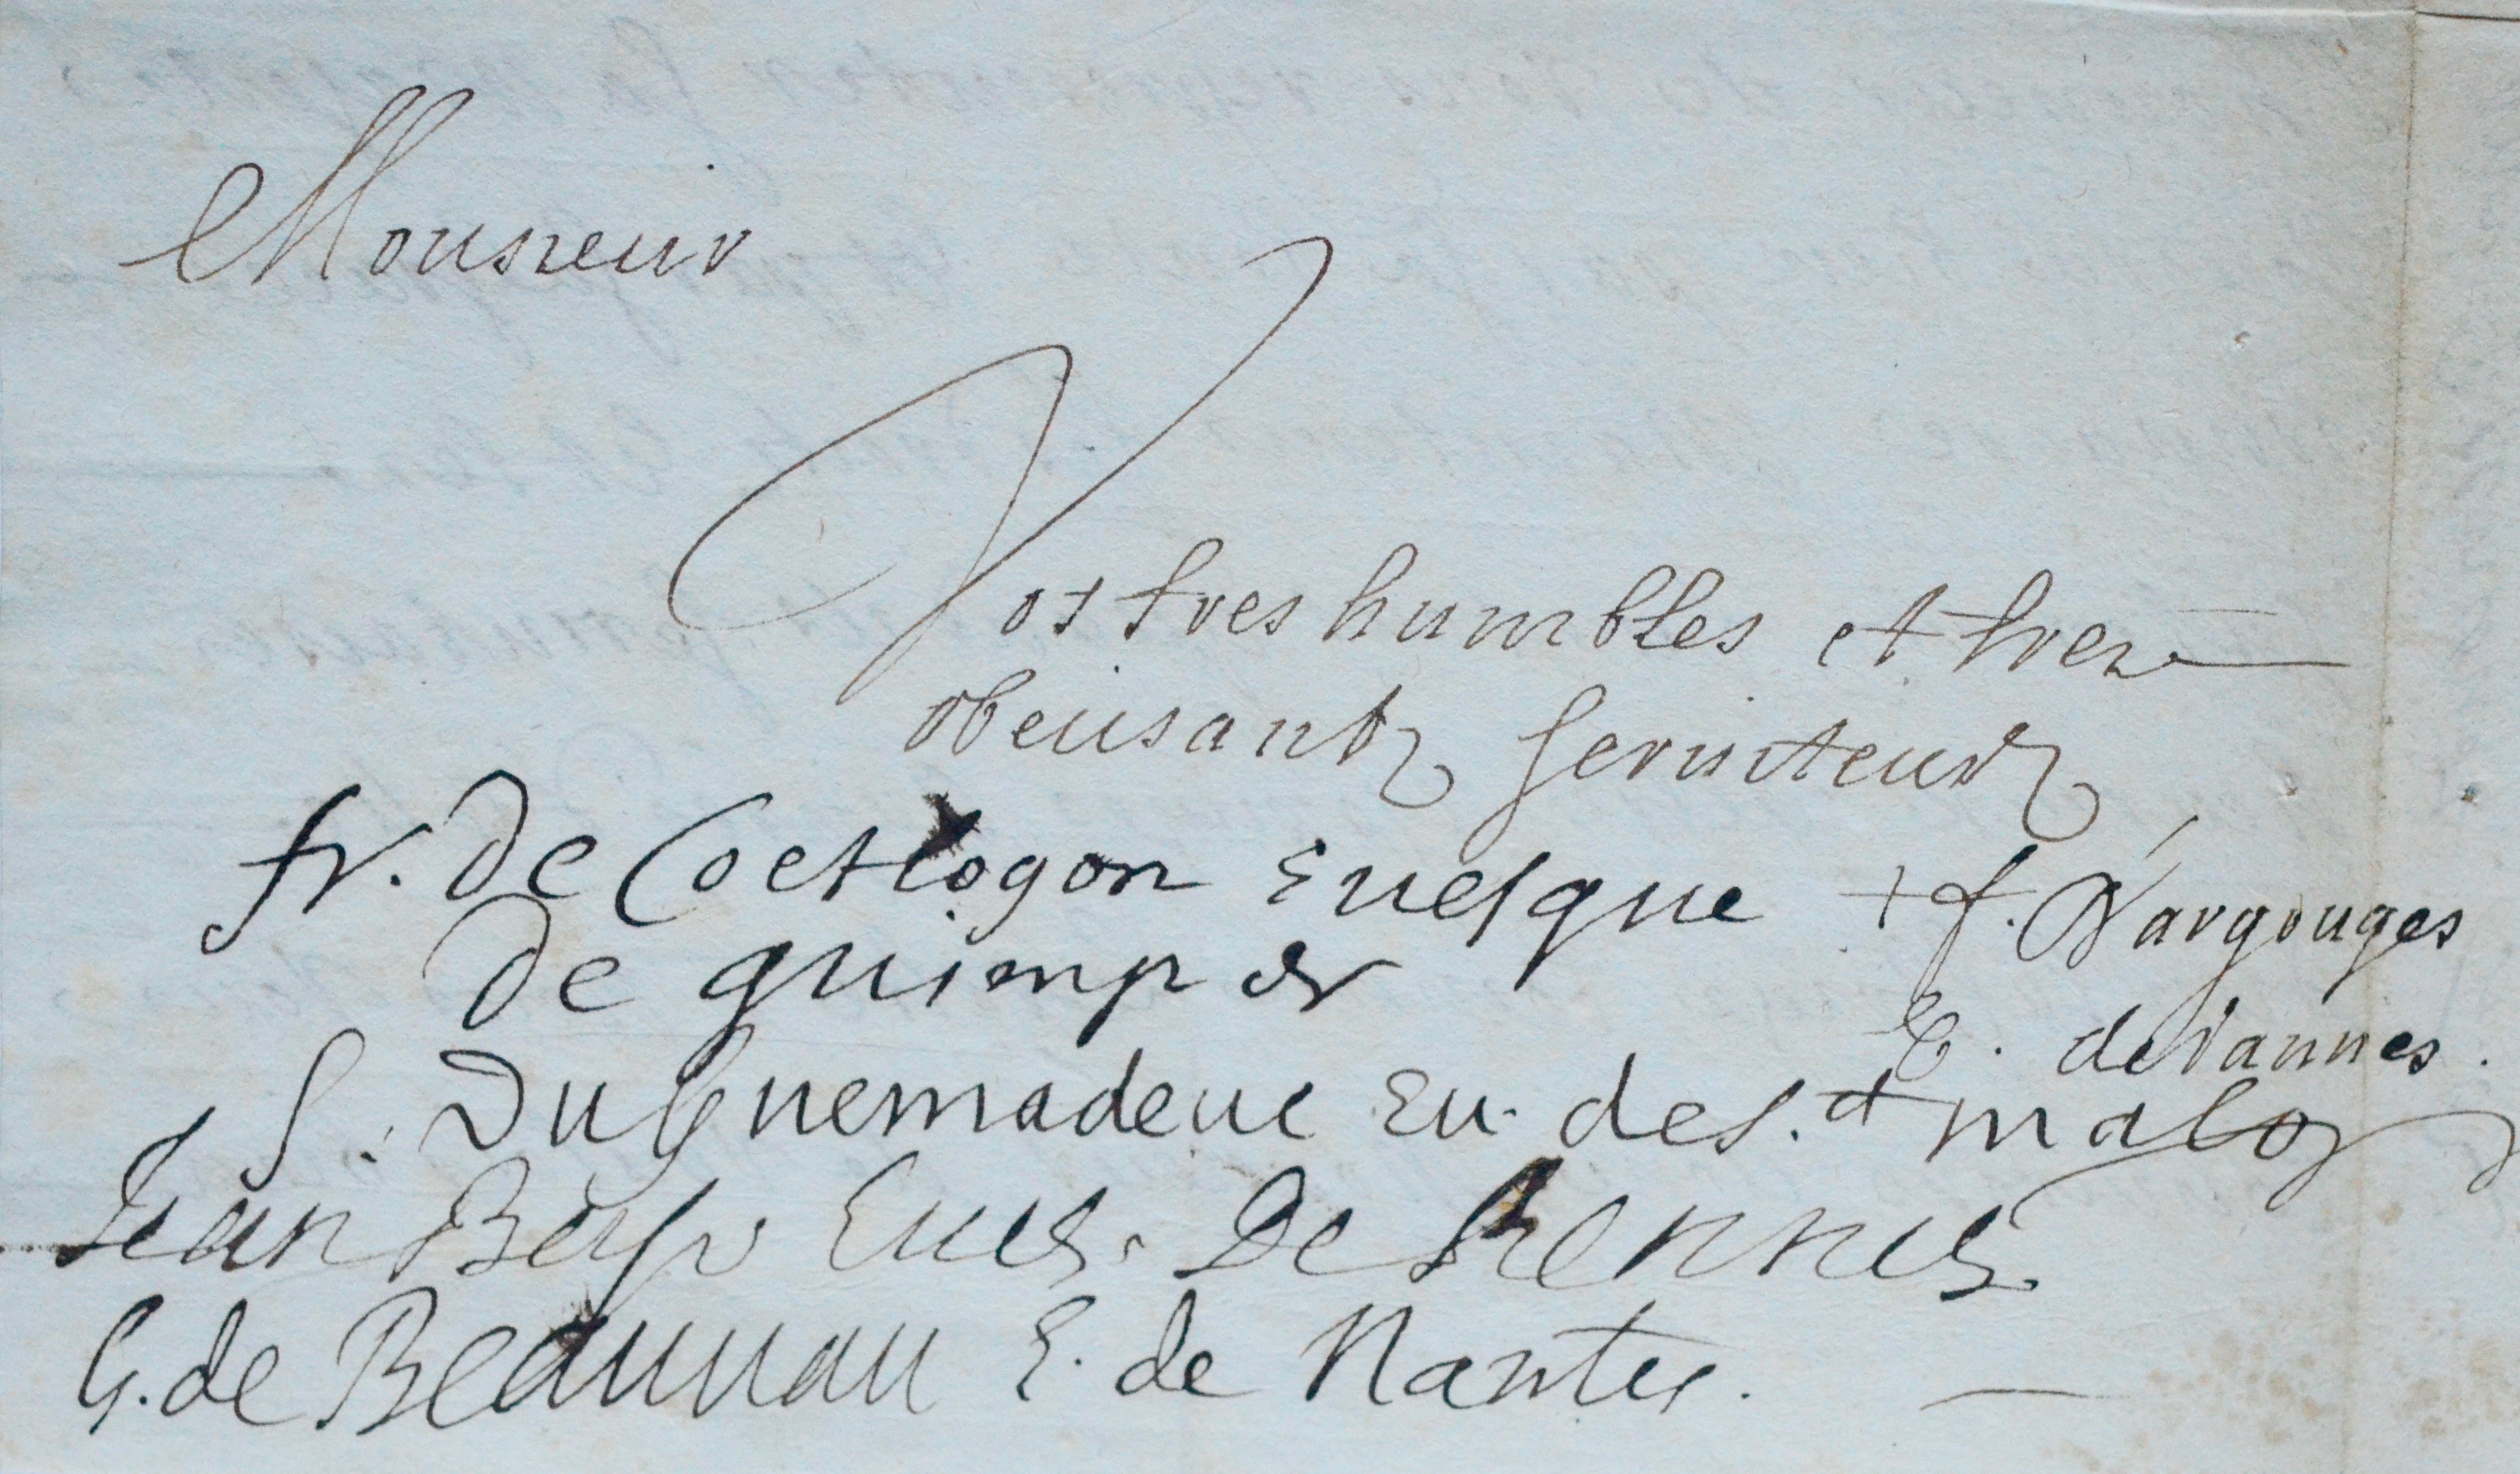 Monsieur
Vos tres humbles et tres
obeissantz seruiteurs
fr. de Coetlogon Euesque
de quimper
+ f. D'argouges
E. de Vannes.
S. Du Guemadeuc Eu. de S.t malo
Jean Bap Eues. De Rennes
G. de Beauuau E. de Nantes.